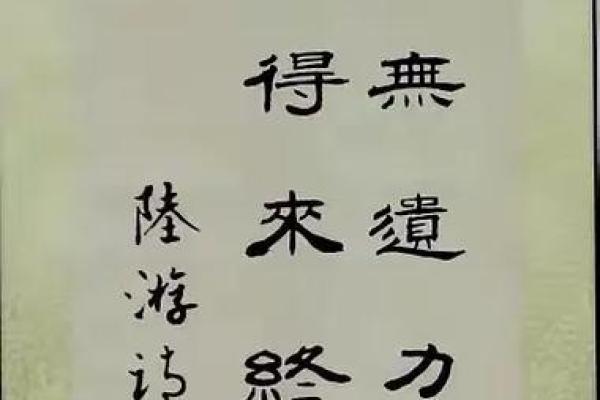 無遺力
得來終
陸游詩